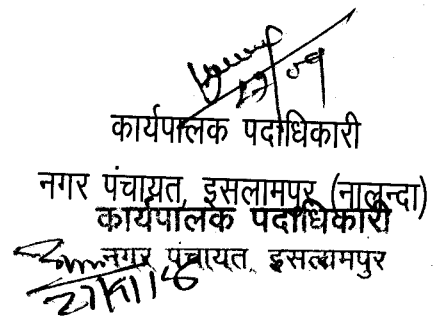 कार्यपालक पदाधिकारी
नगर पंचायत, इसलामपुर (नालन्दा)
कार्यपालक पदाधिकारी
नगर पंचायत, इसलामपुर